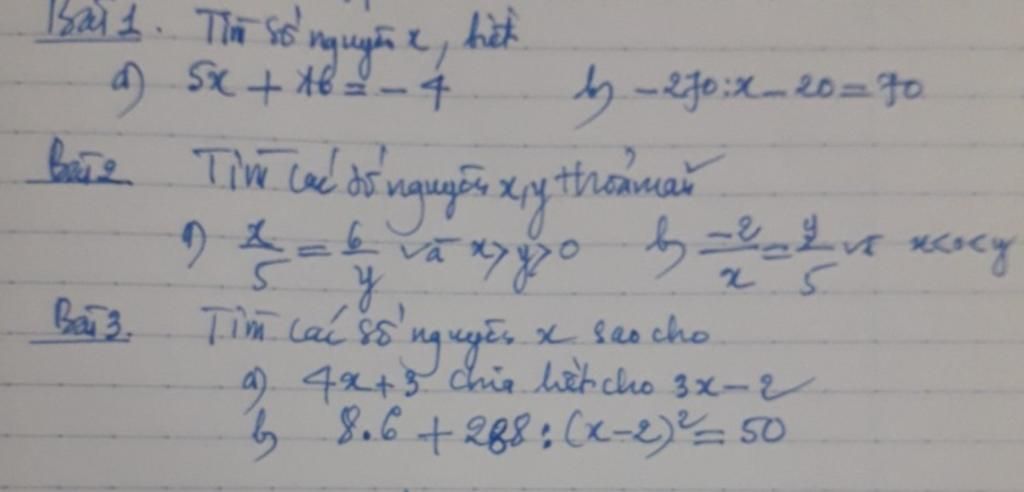 Bài 1. Tìm số nguyên x, biết
a) 5x + 16 = - 4 b) -270:x - 20 = 70
Bài 2 Tìm các số nguyên x,y thỏa mãn
a) x/5 = 6/y và x>y>0 b) -2/x = y/5 và x<0<y
Bài 3. Tìm các số nguyên x sao cho
a) 4x+3 chia hết cho 3x-2
b) 8.6 + 288:(x-2)² = 50